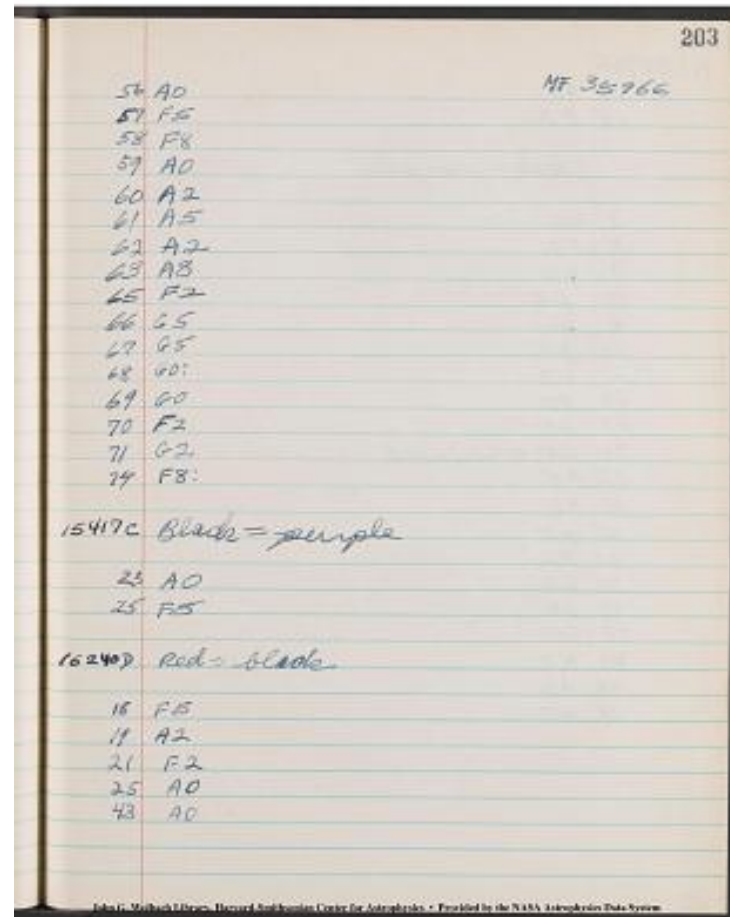 203
MF 35266
56 A0
57 F5
58 F8
59 A0
60 A2
61 A5
62 A2
63 A3
65 F2
66 G5
67 G5
68 G0:
69 G0
70 F2
71 G2
74 F8:
15417C Black = purple
23 A0
25 F5
16240D Red = black
18 F5
19 A2
21 F2
25 A0
43 A0
John G. Wolbach Library, Harvard-Smithsonian Center for Astrophysics • Provided by the NASA Astrophysics Data System